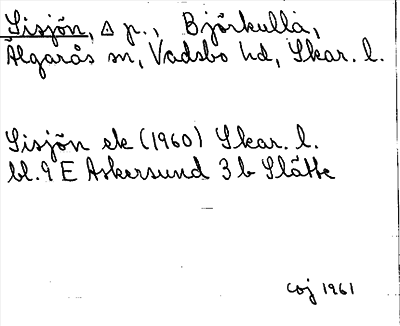 Sisjön, ∆ p., Björkulla,
Älgarås sn, Vadsbo hd, Skar. l.
Sisjön ek (1960) Skar. l.
bl. 9 E Askersund 3 b Slätte
coj 1961